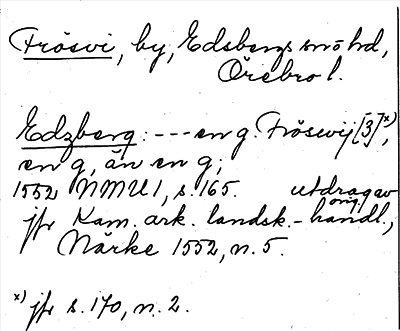 Frösvi, by, Edsbergs snö hd,
Örebro l.
Edzberg: --- en g. Fröswij [3] x),
en g, än en g;
1552 NMU1, s. 165. utdrag av
orig.
jfr Kam. ark. landsk.-handl.,
Närke 1552, n. 5.
x) jfr s. 170, n. 2.